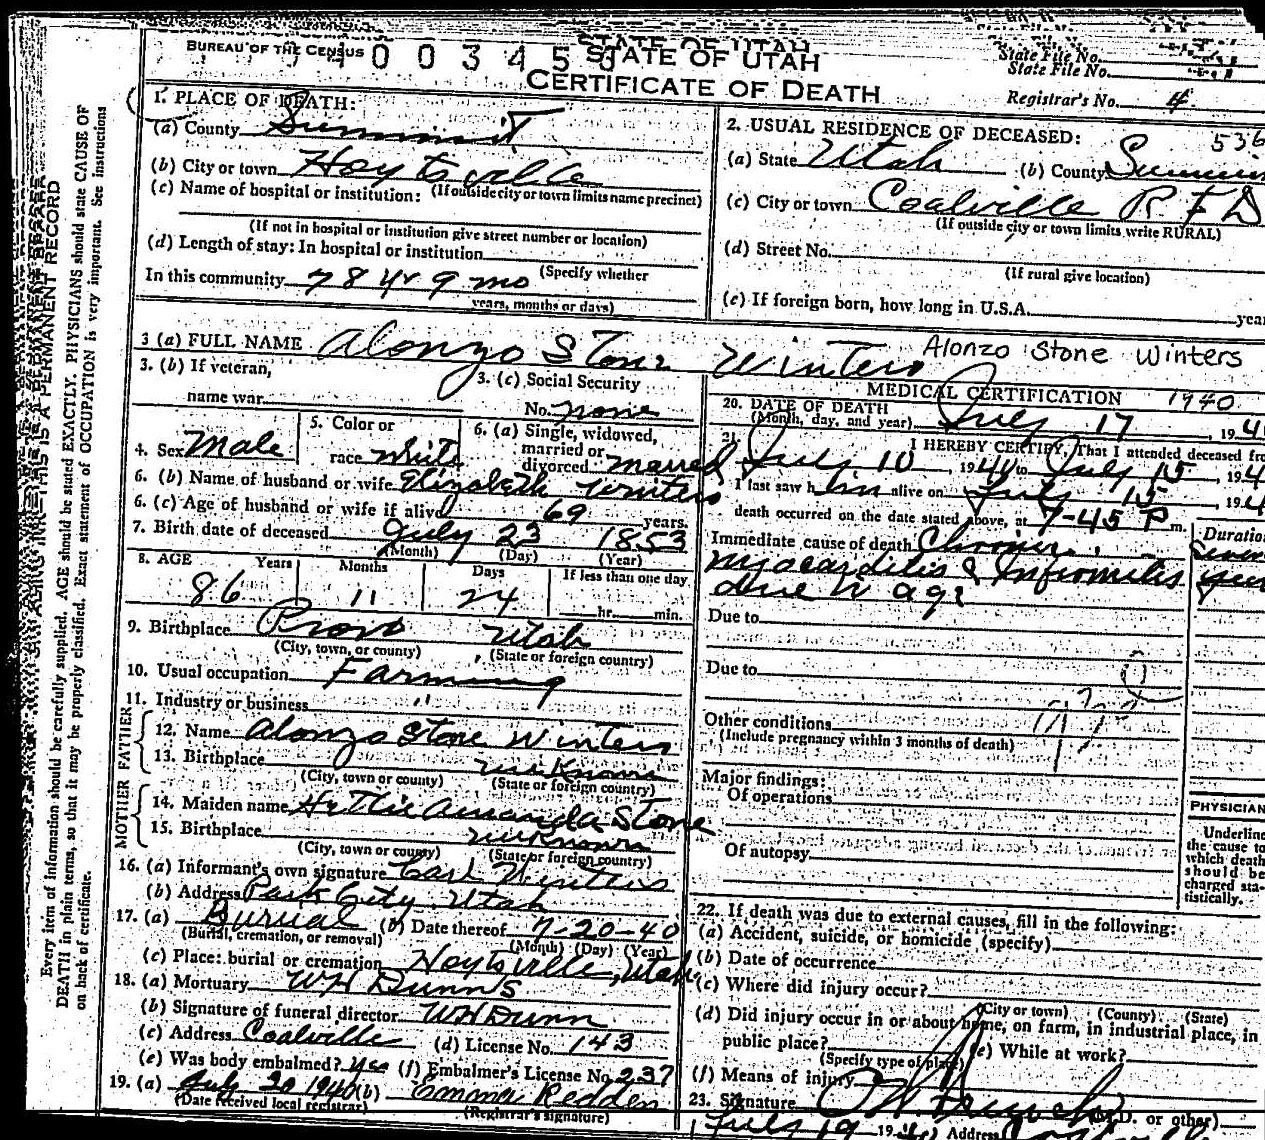 BUREAU OF THE CENSUS
STATE OF UTAH
CERTIFICATE OF DEATH
State File No.
State File No.
Registrar's No. 4
1. PLACE OF DEATH:
(a) County Summit
(b) City or town Hoytsville
(If outside city or town limits name precinct)
(c) Name of hospital or institution:
(If not in hospital or institution give street number or location)
(d) Length of stay: In hospital or institution
(Specify whether
In this community 78 yr 9 mo
years, months or days)
2. USUAL RESIDENCE OF DECEASED: 536
(a) State Utah (b) County
(c) City or town Coalville R F D
(If outside city or town limits write RURAL)
(d) Street No.
(If rural give location)
(e) If foreign born, how long in U.S.A.
3 (a) FULL NAME Alonzo Stone Winters Alonzo Stone Winters
3. (b) If veteran,
name war
3. (c) Social Security
No. none
4. Sex Male
5. Color or
race white
6. (a) Single, widowed,
married or
divorced married
6. (b) Name of husband or wife Elizabeth Winters
6. (c) Age of husband or wife if alive 69 years.
7. Birth date of deceased July 23 1853
(Month) (Day) (Year)
8. AGE Years Months Days If less than one day
86 11 24 hr. min.
9. Birthplace Provo Utah
(City, town, or county) (State or foreign country)
10. Usual occupation Farming
11. Industry or business "
FATHER
12. Name Alonzo Stone Winters
13. Birthplace unknown
(City, town or county) (State or foreign country)
MOTHER
14. Maiden name Amanda Stone
15. Birthplace unknown
(City, town or county) (State or foreign country)
16. (a) Informant's own signature Carl Winters
(b) Address Park City Utah
17. (a) Burial (b) Date thereof 7-20-40
(Burial, cremation, or removal) (Month) (Day) (Year)
(c) Place: burial or cremation Hoytsville, Utah
18. (a) Mortuary W H Dunn's
(b) Signature of funeral director W H Dunn
(c) Address Coalville (d) License No. 143
(e) Was body embalmed? Yes (f) Embalmer's License No. 237
19. (a) July 20 1940 (b) Emma Redden
(Date received local registrar) (Registrar's signature)
MEDICAL CERTIFICATION 1940
20. DATE OF DEATH
(Month, day, and year) July 17, 194
21. I HEREBY CERTIFY, That I attended deceased
July 10, 1940 to July 15, 194
I last saw him alive on July 15, 194
death occurred on the date stated above, at 7-45 P m.
Immediate cause of death Chronic
myocarditis & Infirmities
due to age
Due to
Due to
Other conditions
(Include pregnancy within 3 months of death)
Major findings:
Of operations
Of autopsy
PHYSICIAN
Underline
the cause to
which death
should be
charged sta-
tistically.
22. If death was due to external causes, fill in the following:
(a) Accident, suicide, or homicide (specify)
(b) Date of occurrence
(c) Where did injury occur?
(City or town) (County) (State)
(d) Did injury occur in or about home, on farm, in industrial place, in
public place?
(Specify type of place) (e) While at work?
(f) Means of injury
23. Signature (M.D. or other)
July 19 19 Address
Every item of information should be carefully supplied. AGE should be stated EXACTLY. PHYSICIANS should state CAUSE OF
DEATH in plain terms, so that it may be properly classified. Exact statement of OCCUPATION is very important. See instructions
on back of certificate.